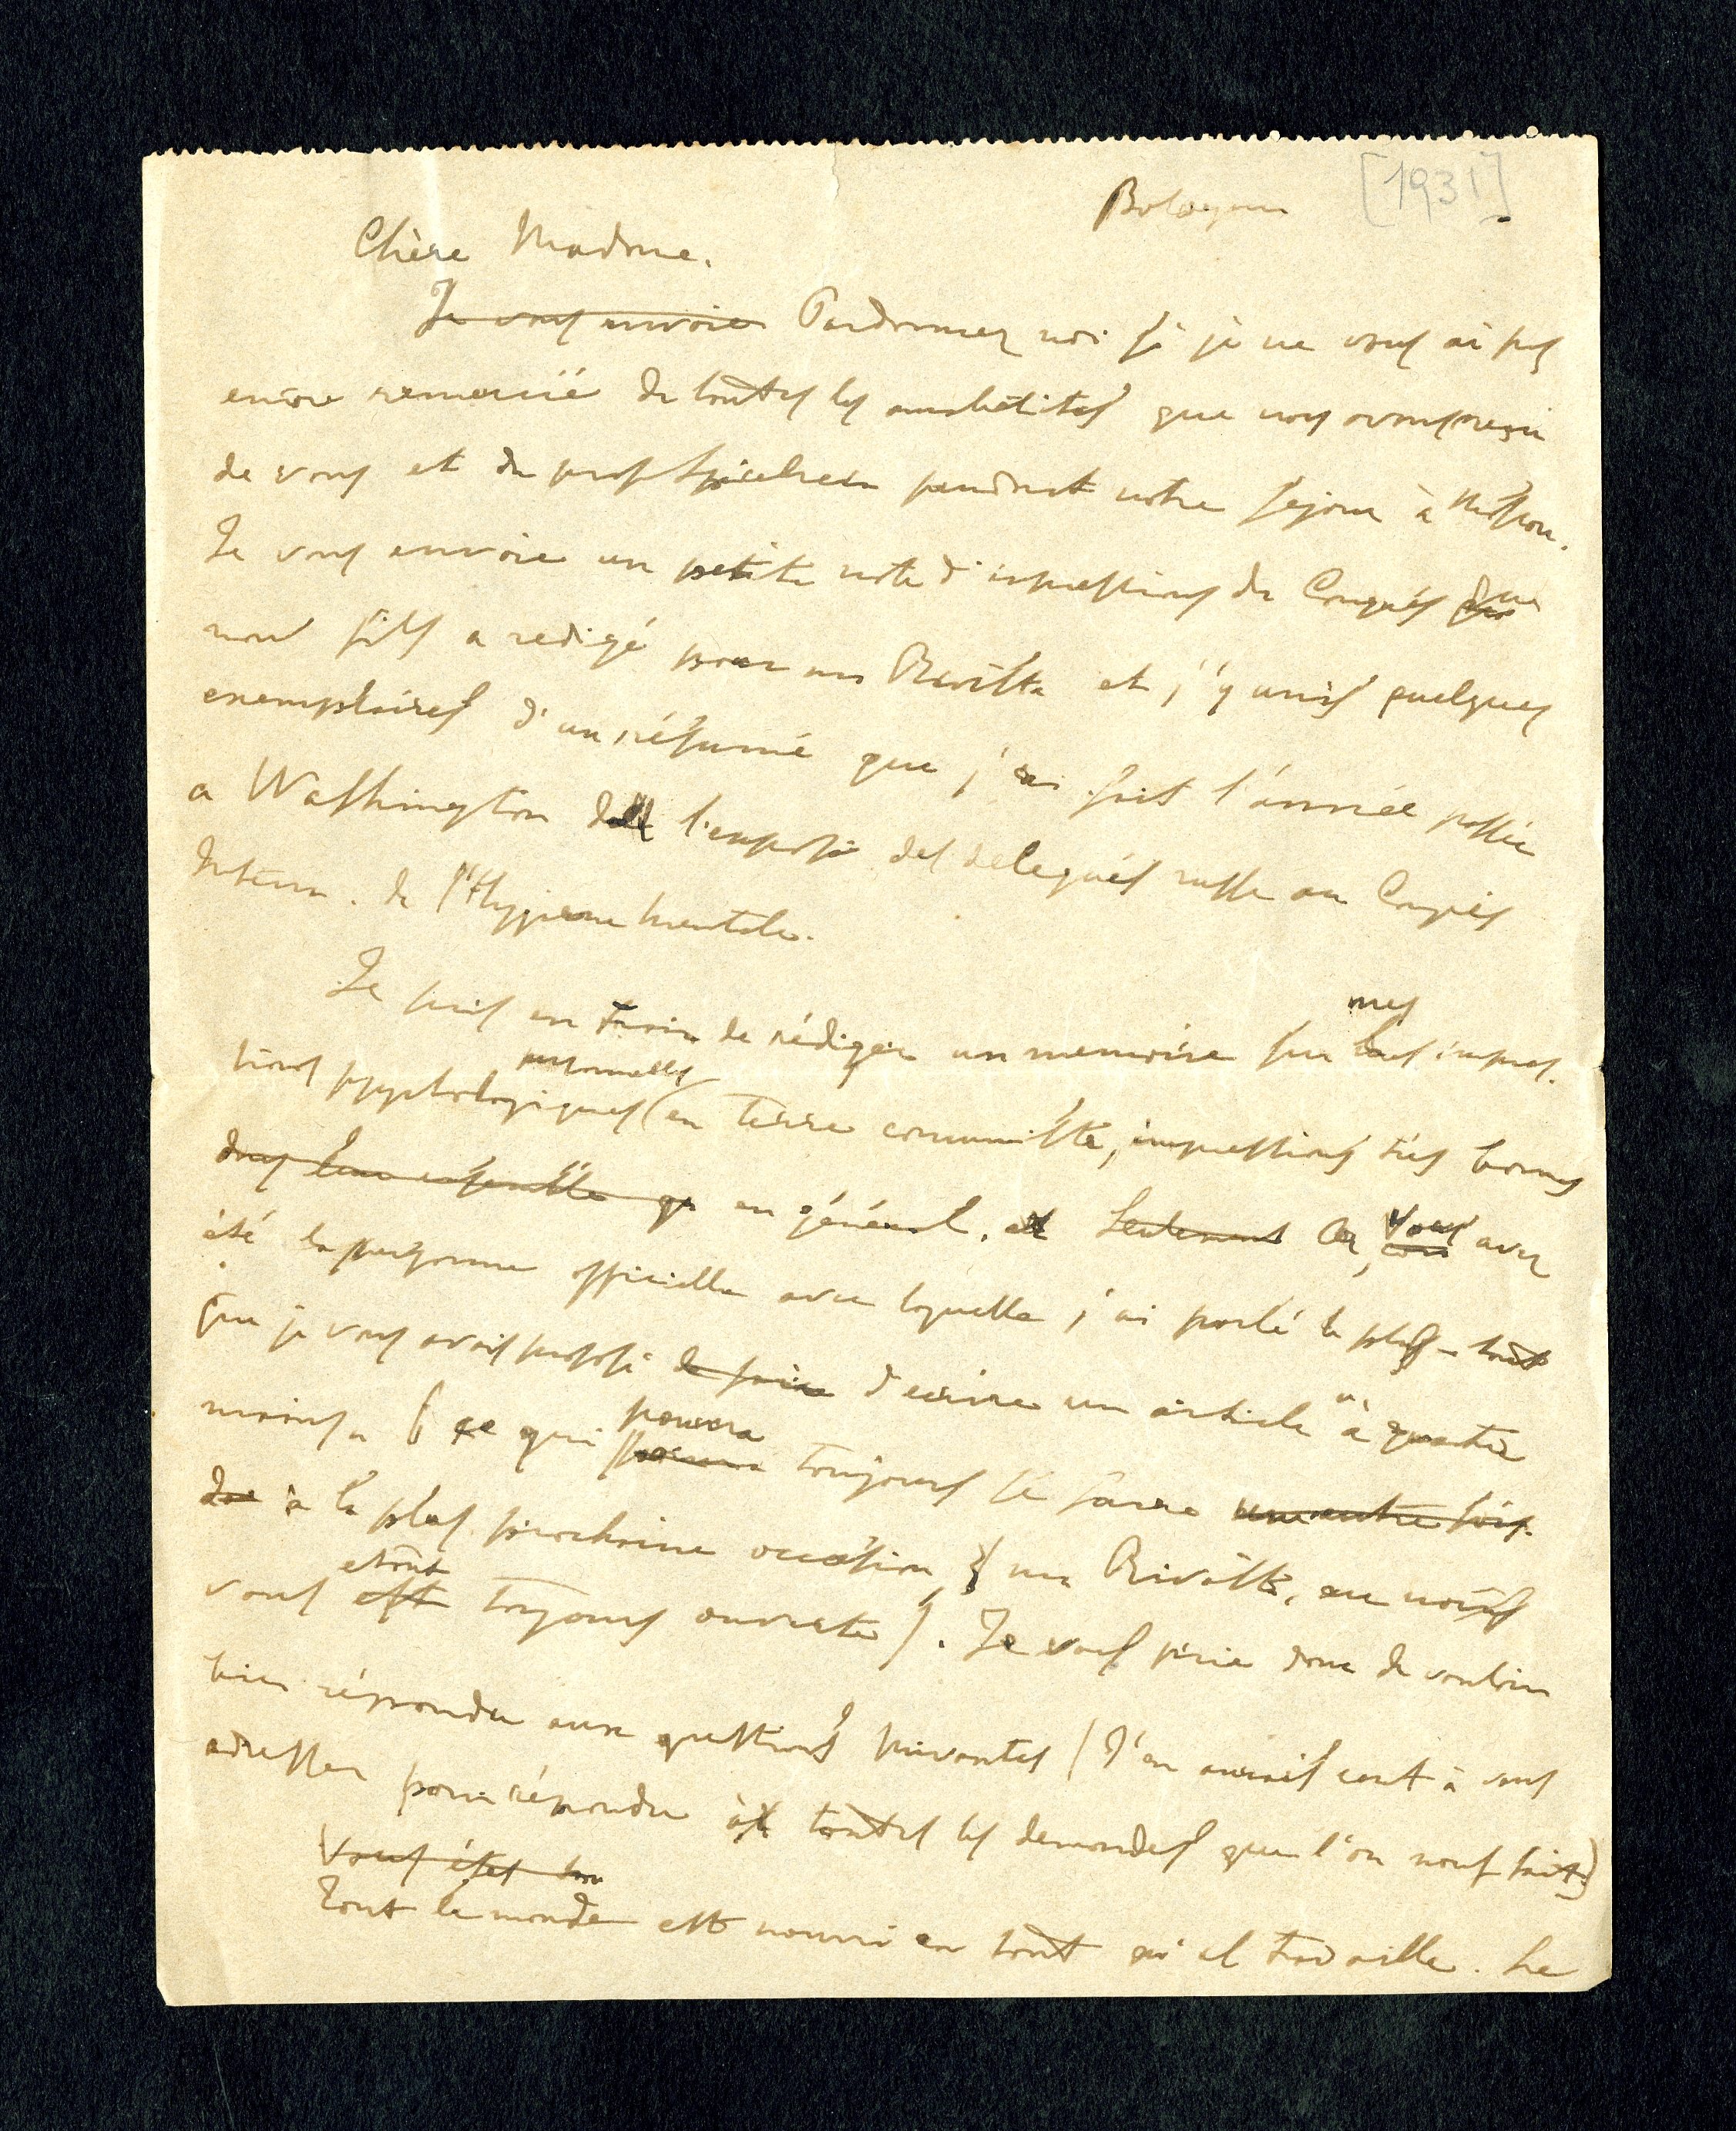 Bologna [1931]
Chère Madme.
Je vous envoie Pardonnez moi si je ne vous ai pas
encore remercié de toutes les amabilités que nous avons reçu
de vous et du prof Spielrein pendant notre sejour à Moscou.
Je vous envoie un petite note d'impressions du Congrés que
mon fils a redigé pour ma Rivista et j'y unis quelques
exemplaires d'un résumé que j'ai fait l'année passée
a Washington de l'exposé des delegués russe au Congrès
Intern. de l'Hygiene mentale.
Je suis en train de rédiger un memoire sur mes impres-
sions psychologiques personnelles en terre comuniste, impressions très bonnes
dans leur ensemble qu en général. et Seulement Or, vous avez
été la personne officielle avec laquelle j'ai parlé le plus - tout
que je vous avais proposé de faire d'ecrire un article à quatre
mains. (ce qui pouvra toujours se faire une autre fois
à la plus prochaine occasion, ma Rivista, en nous
vous est etant toujours ouverte). Je vous prie donc de vouloir
bien répondre aux questions suivantes (J'en aurais cent à vous
adresser pour répondre à toutes les demandes que l'on nous fait)
Vous étes
Tout le monde est nourri en tant qu'il travaille. Le